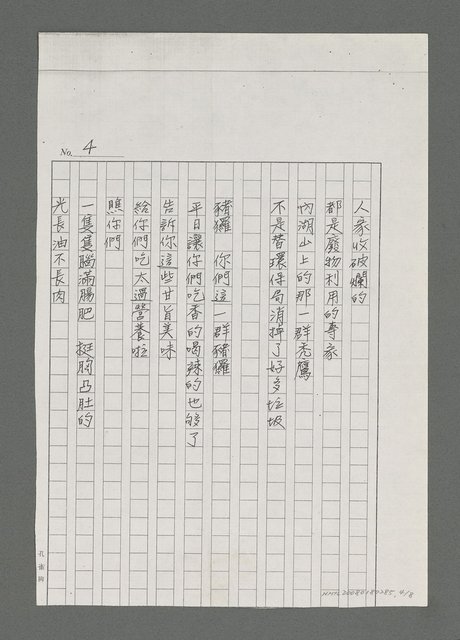 No. 4
人家收破爛的
都是廢物利用的專家
內湖山上的那一群禿鷹
不是替環保局消掉了好多垃圾
豬玀 你們這一群豬玀
平日讓你們吃香的喝辣的也够了
告訴你這些甘旨美味
給你們吃太過營養啦
瞧你們
一隻隻腦滿腸肥 挺胸凸肚的
光長油不長肉
孔雀牌
NMTL20080180285, 4/8